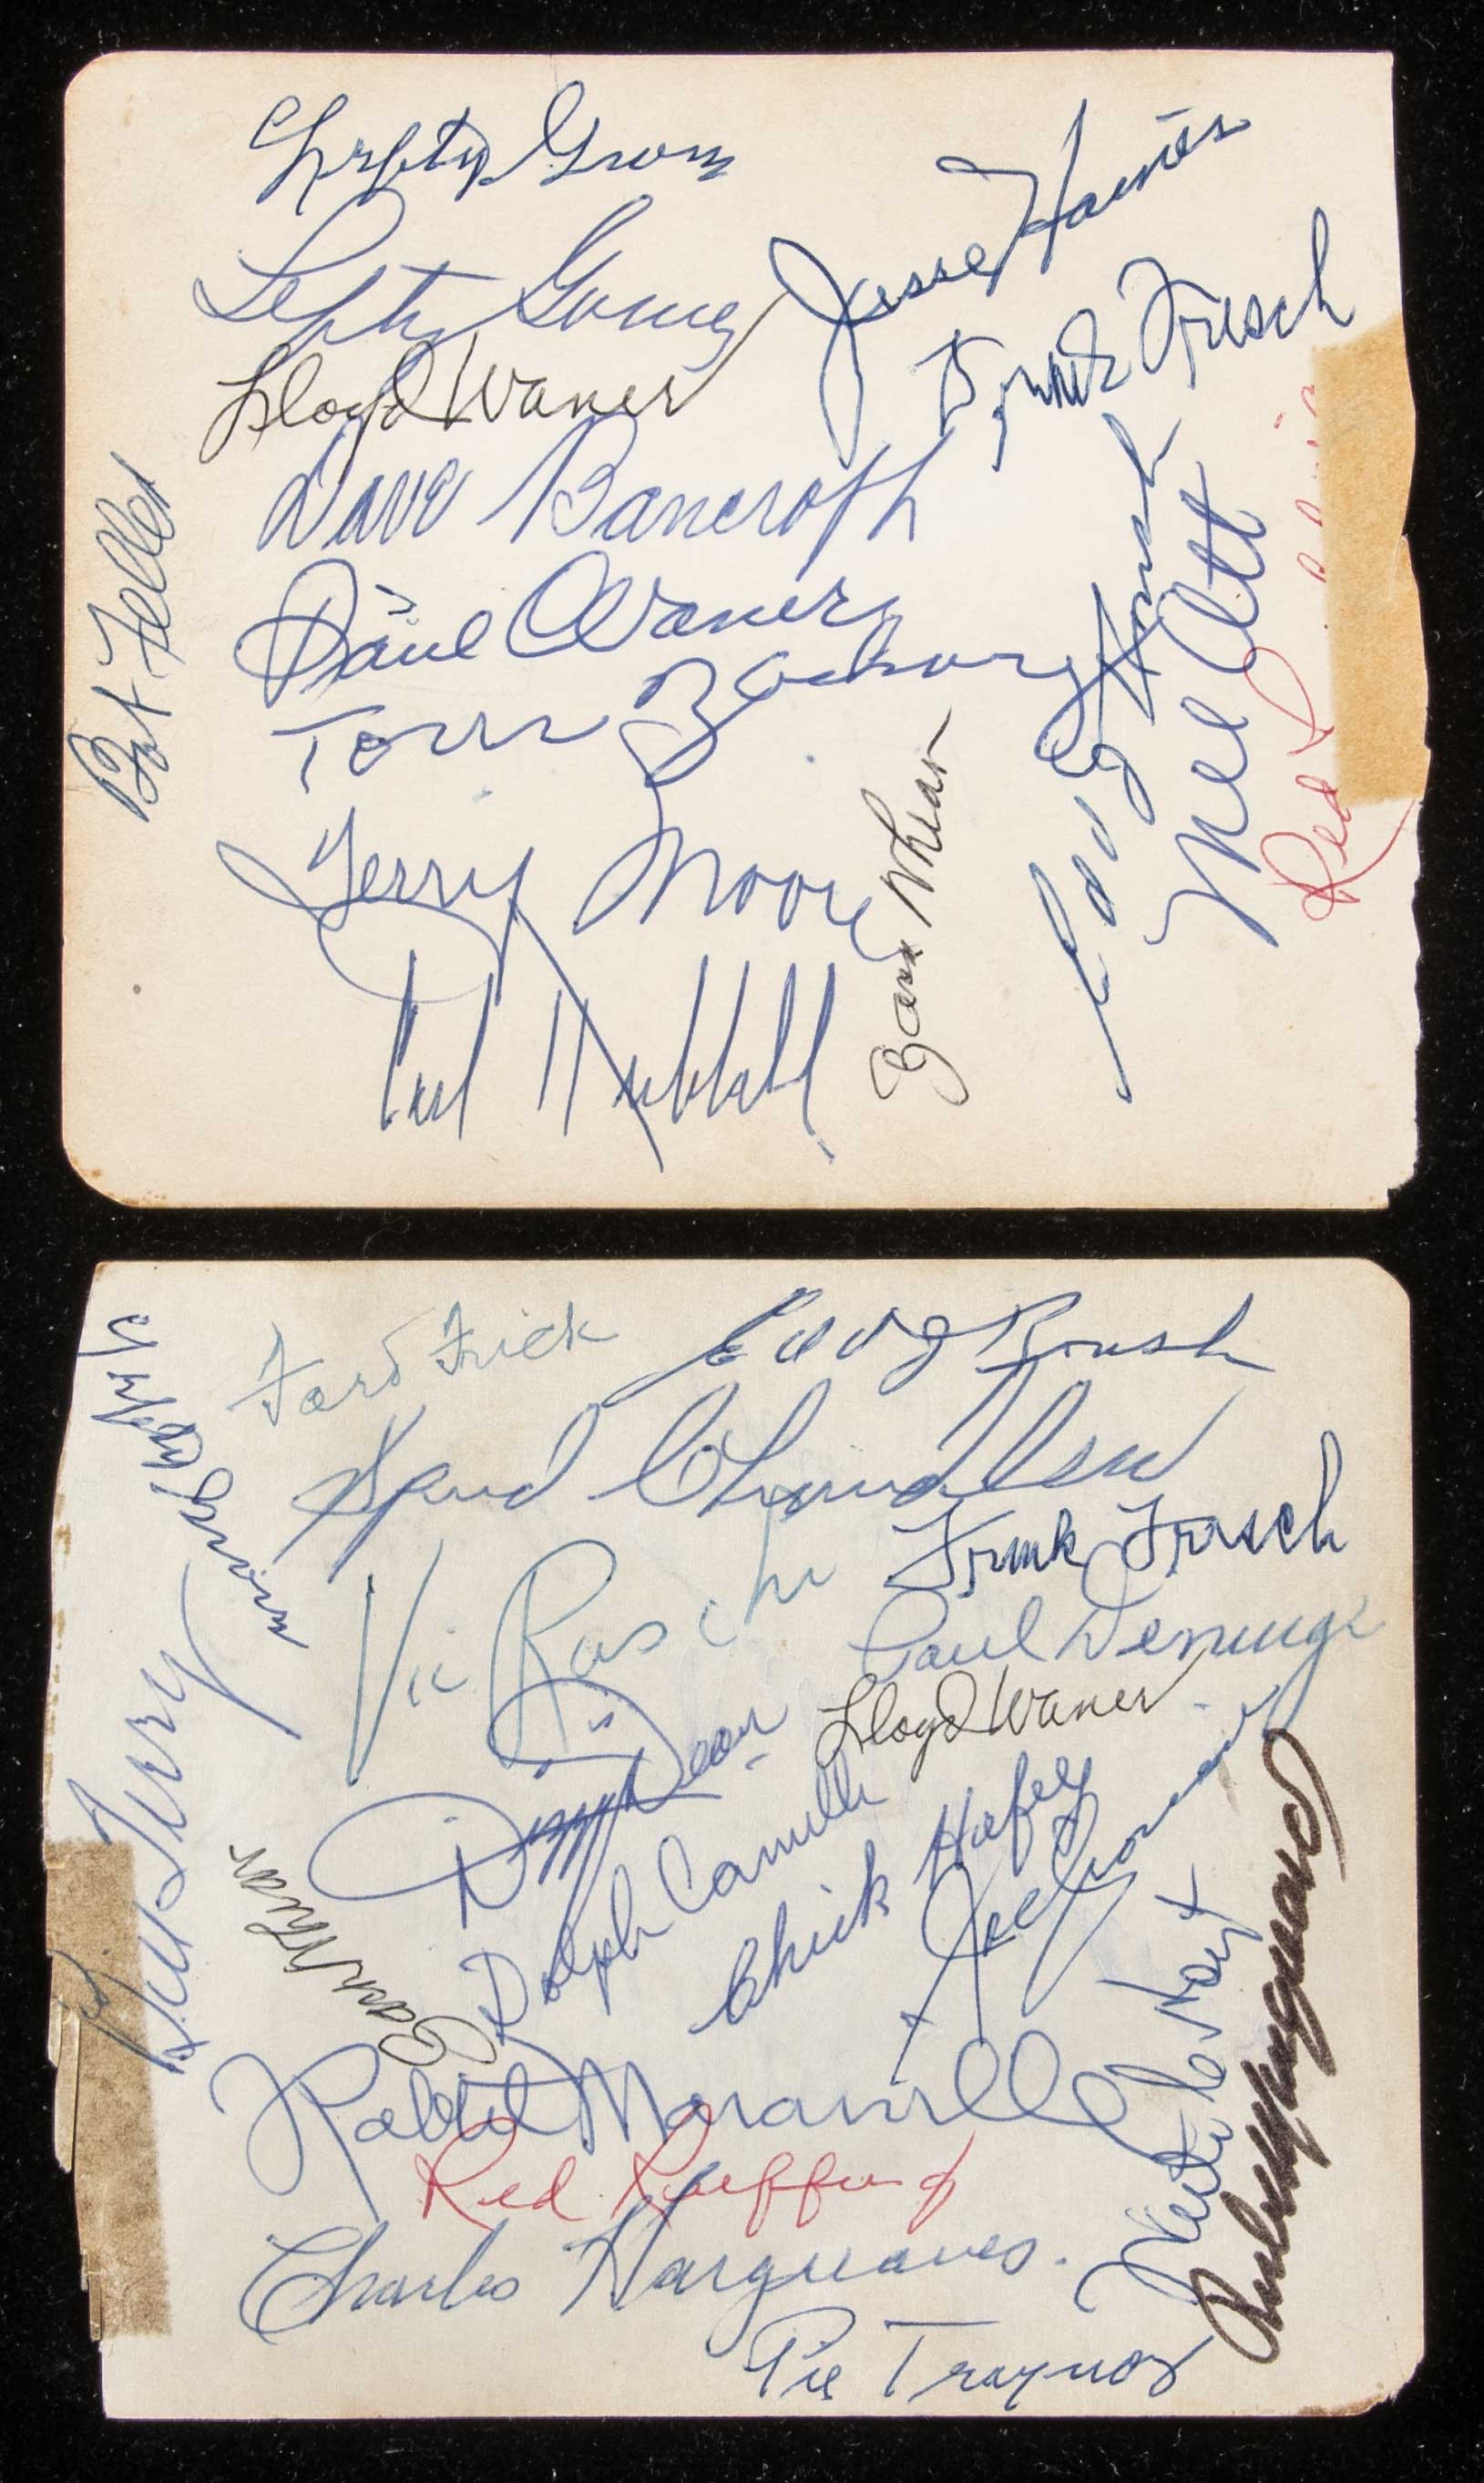 Lefty Grove
Lefty Gomez
Jesse Haines
Frank Frisch
Lloyd Waner
Dave Bancroft
Bob Feller
Paul Waner
Tom Zachary
Terry Moore
Zack Wheat
Carl Hubbell
Edd J Roush
Mel Ott
Red
Ford Frick
Edd J Roush
Spud Chandler
Vic Raschi
Frank Frisch
Paul Derringer
Lloyd Waner
Dizzy Dean
Dolph Camilli
Chick Hafey
Joe Cronin
Bill Terry
Zack Wheat
Rabbit Maranville
Red Ruffing
Charles Hargreaves.
Pie Traynor
Waite Hoyt
Rube Marquard